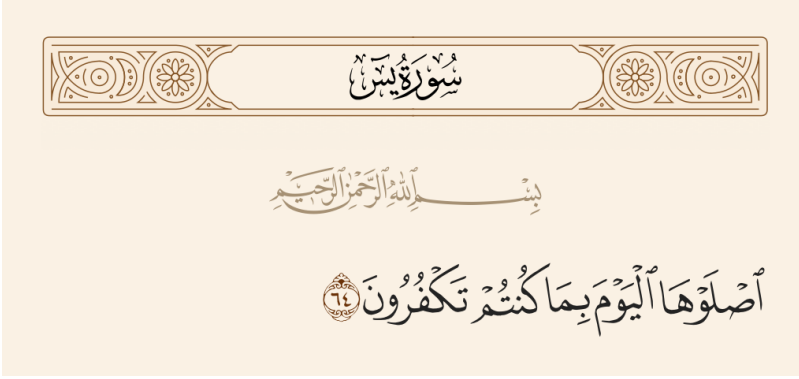 سُورَةُ يسٓ
بِسْمِ ٱللَّهِ ٱلرَّحْمَٰنِ ٱلرَّحِيمِ
ٱصْلَوْهَا ٱلْيَوْمَ بِمَا كُنتُمْ تَكْفُرُونَ ٦٤